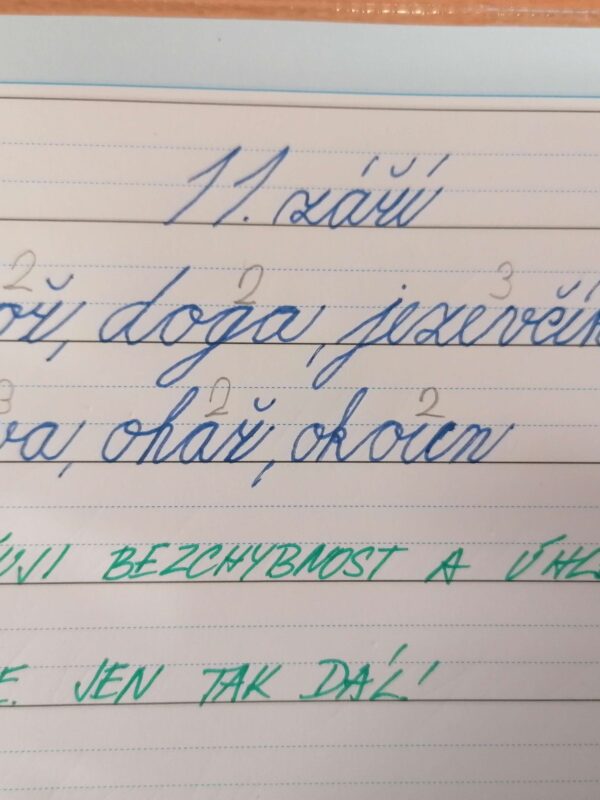 11. září
2 2 3
oř, doga, jezevčík
3 2 2
va, ohař, okoun
UJI BEZCHYBNOST A ÚHL
E. JEN TAK DÁL!